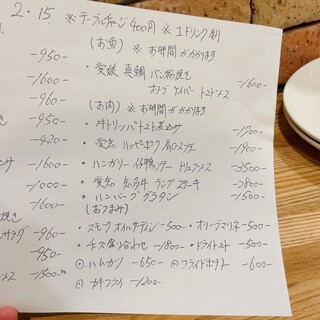 2.15 ※テーブルチャージ400円 ※1ドリンク制
(お魚) ※お時間がかかります
-950-
・愛媛 真鯛 パン粉焼き
-1600-
オリーブ ケイパー トマトソース -1600-
-960-
(お肉) ※お時間がかかります
-950-
・牛トリッパ トマト煮込み -1700-
-420-
・愛知 -1900-
-1600-
・ハンガリー 仔鴨 ソテー トリュフソース -3500-
-1000-
・愛知 知多牛 ランプステーキ -2800-
-1000-
・ハンバーグ グラタン -1500-
(おつまみ)
焼き
サラダ -960-
・スモークオイルサーディン -500- ・オリーブマリネ -500-
-950-
・チーズ盛り合わせ -1800- ・ドライトマト -500-
-1500-
・ハムカツ -650- ・フライドポテト -600-
・カキフライ -1200-